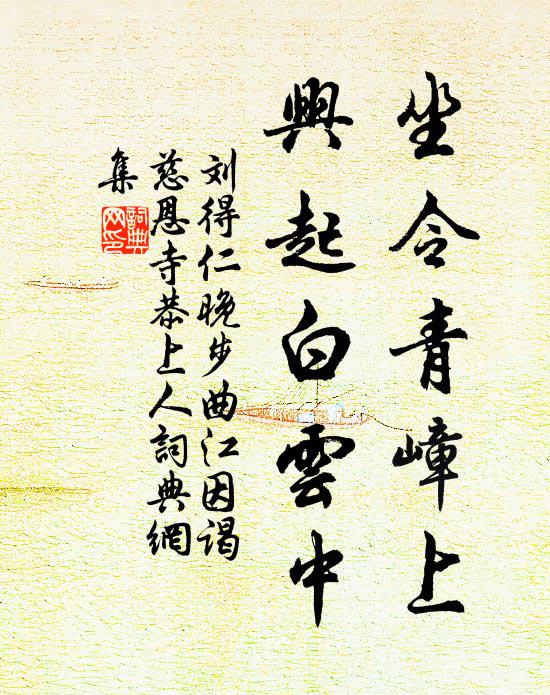 坐令青嶂上
興起白雲中
刘得仁晚步曲江因谒
慈恩寺恭上人詞典網
集
詞典
网印